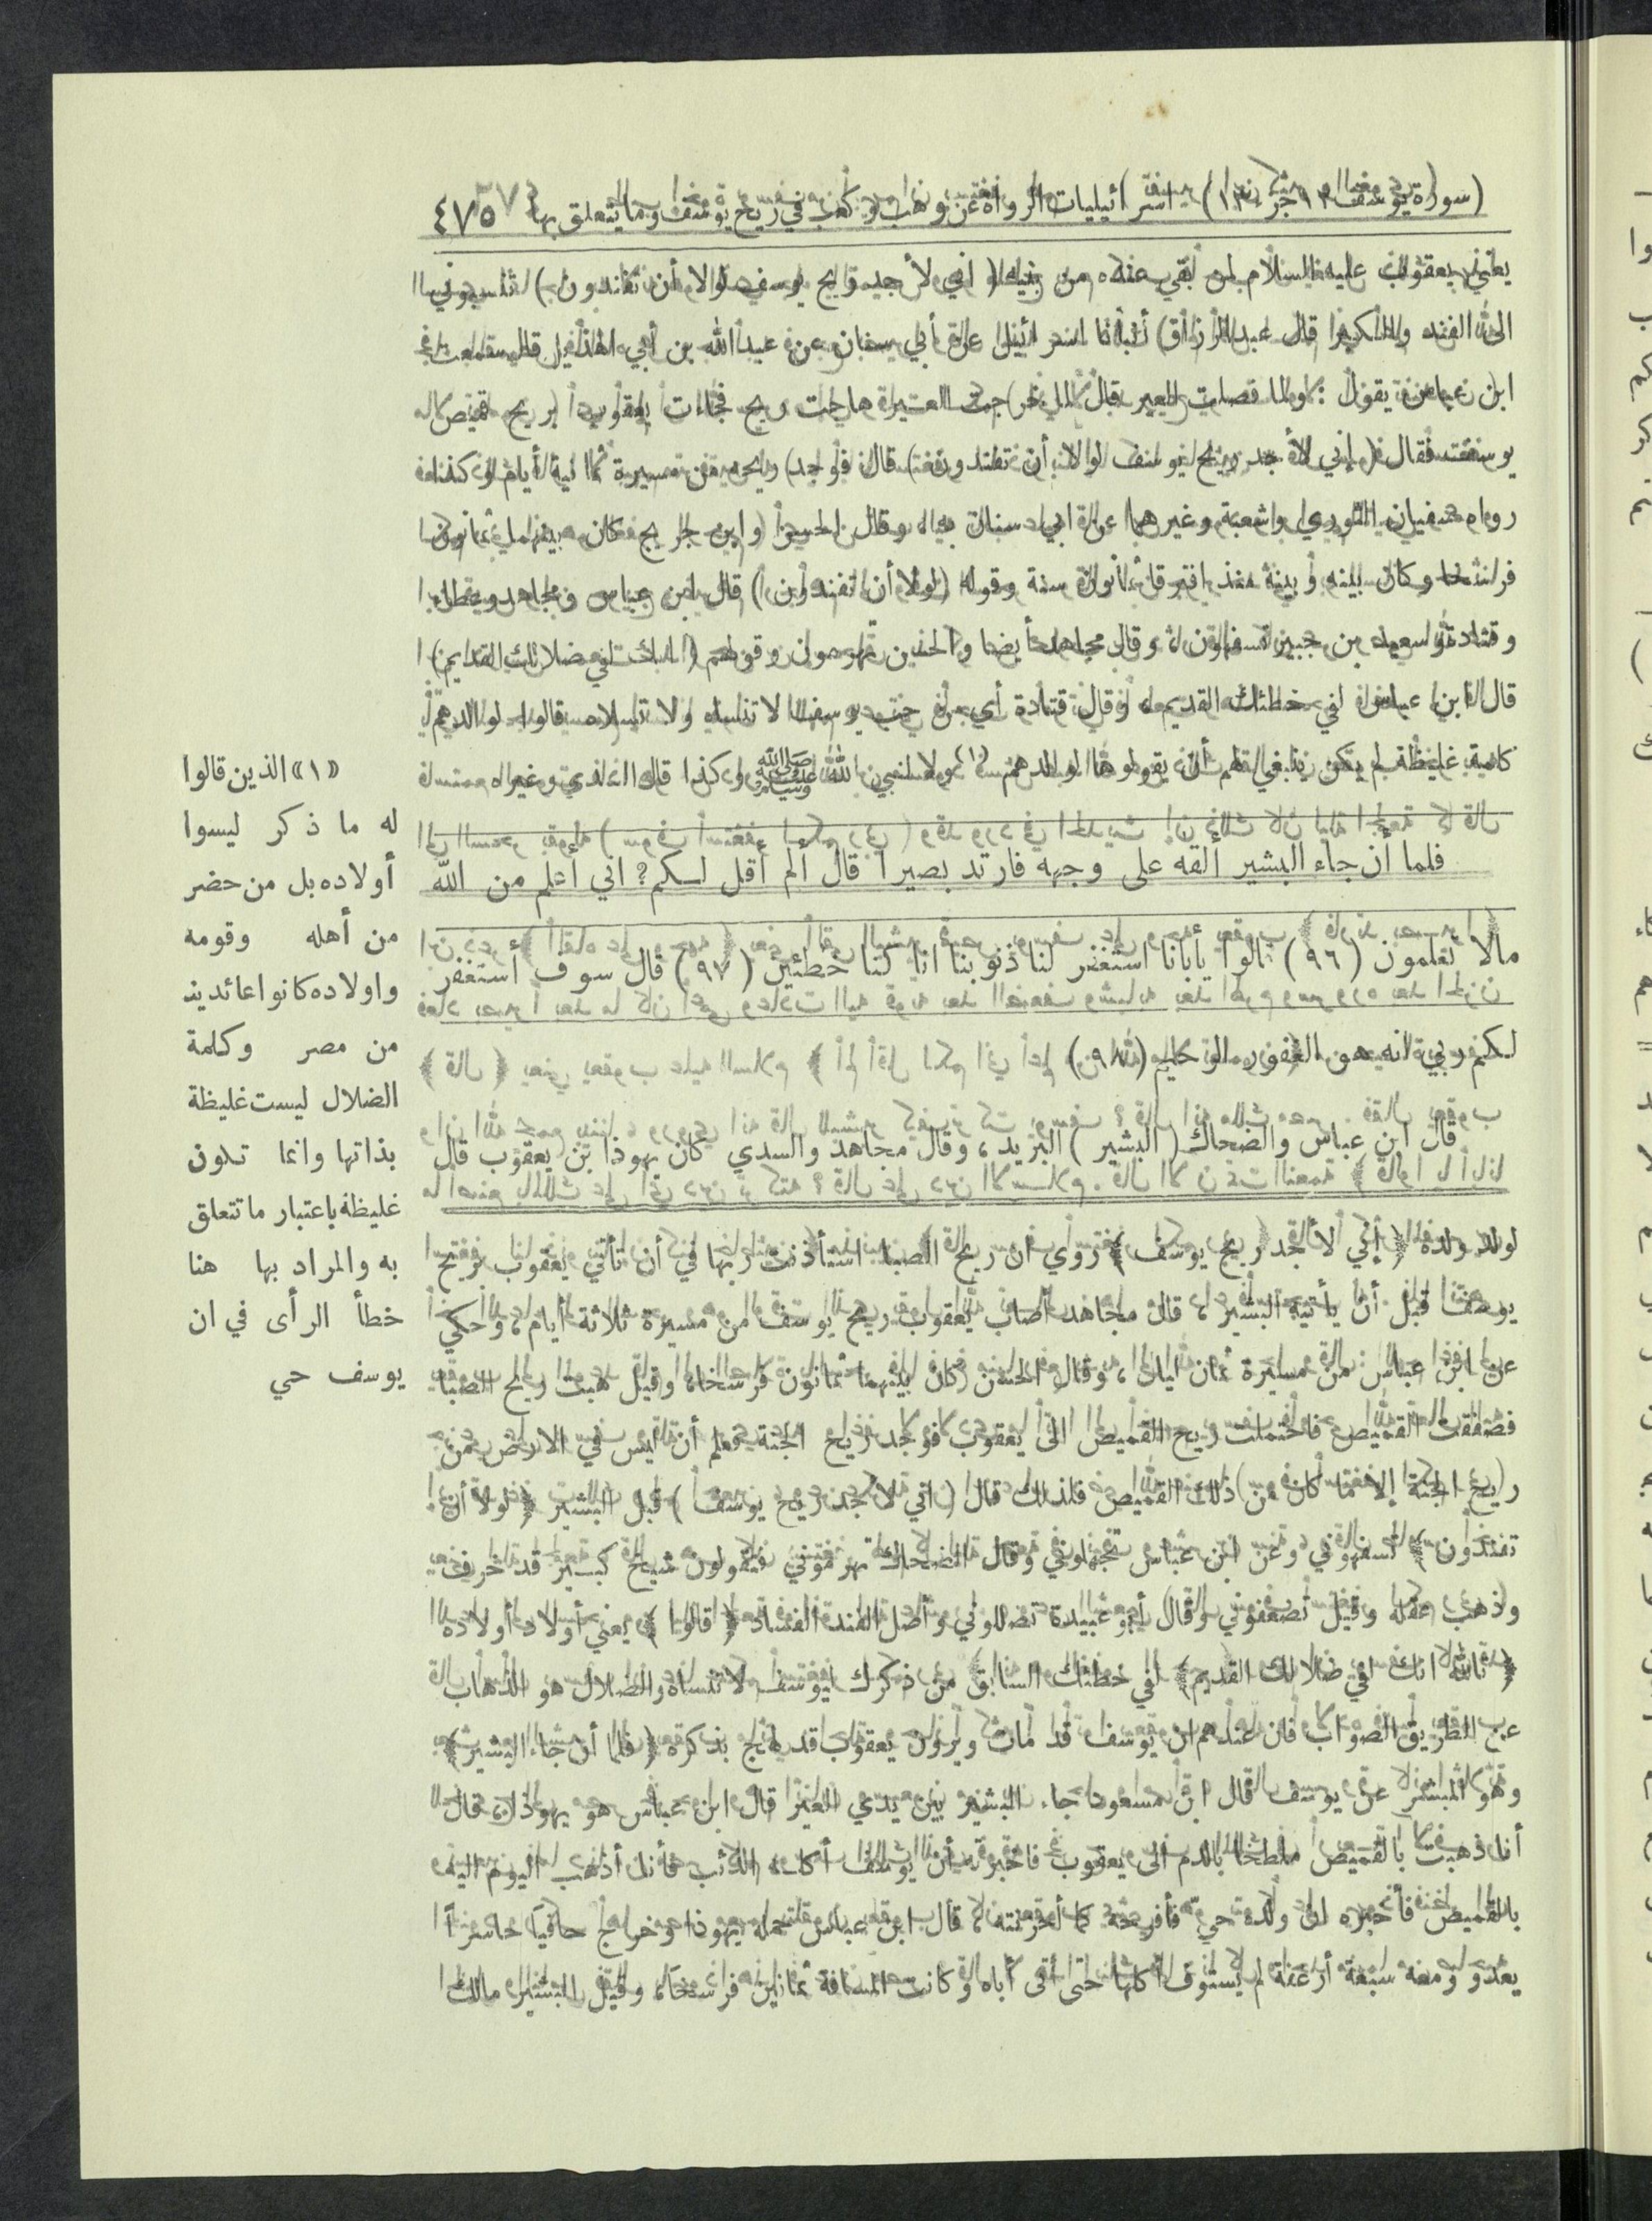 (سورة يوسف ١٢ جزء ١٣) اسرائيليات الرواة عن وهب وكعب في ريح يوسف وما يتعلق بها ٤٧٥
يعني يعقوب عليه السلام لمن بقي عنده من بنيه (اني لأجد ريح يوسف لولا أن تفندون) تنسبوني
الى الفند والكبر قال عبدالرزاق أنبأنا اسرائيل عن أبي سنان عن عبدالله بن أبي الهذيل قال سمعت
ابن عباس يقول: ولما فصلت العير قال لما خرجت العير هاجت ريح فجاءت يعقوب بريح قميص
يوسف فقال (إني لأجد ريح يوسف لولا أن تفندون) قال فوجد ريحه من مسيرة ثمانية أيام وكذا
رواه سفيان الثوري وشعبة وغيرهما عن ابي سنان به وقال الحسن وابن جريج كان بينهما ثمانون
فرسخا وكان بينه وبينه منذ افترقا ثمانون سنة وقوله (لولا أن تفندون) قال ابن عباس ومجاهد وعطاء
وقتادة وسعيد بن جبير تسفهون وقال مجاهد أيضا والحسن تهرمون وقولهم (إنك لفي ضلالك القديم)
قال ابن عباس لفي خطئك القديم وقال قتادة أي من حب يوسف لا تنساه ولا تسلاه قالوا لوالدهم
كلمة غليظة لم يكن ينبغي لهم أن يقولوها لوالدهم (١) ولا لنبي الله ﷺ وكذا قال السدي وغيره
فلما أن جاء البشير ألقه على وجهه فارتد بصيرا قال ألم أقل لكم؟ اني أعلم من الله
مالا تعلمون (٩٦) قالوا يأبانا استغفر لنا ذنوبنا انا كنا خطئين (٩٧) قال سوف أستغفر
لكم ربي انه هو الغفور الرحيم (٩٨)
قال ابن عباس والضحاك (البشير) البريد، وقال مجاهد والسدي كان يهوذا بن يعقوب قال
لولد ولده ﴿إني لأجد ريح يوسف﴾ روي ان ريح الصبا استأذنت ربها في أن تأتي يعقوب بريح
يوسف قبل أن يأتيه البشير، قال مجاهد أصاب يعقوب ريح يوسف من مسيرة ثلاثة أيام، وحكي
عن ابن عباس: من مسيرة ثمان ليال، وقال الحسن كان بينهما ثمانون فرسخا، وقيل هبت ريح الصبا
فصفقت القميص فاحتملت ريح القميص الى يعقوب فوجد ريح الجنة فعلم أن ليس في الارض من
ريح الجنة إلا ما كان من ذلك القميص فلذلك قال (اني لأجد ريح يوسف) قبل البشير ﴿لولا أن
تفندون﴾ تسفهوني وعن ابن عباس تجهلوني وقال الضحاك تهرموني فيقولون شيخ كبير قد خرف
وذهب عقله وقيل تضعفوني وقال أبو عبيدة تضللوني وأصل الفند الفساد ﴿قالوا﴾ يعني أولاد أولاده
﴿تالله انك لفي ضلالك القديم﴾ لفي خطئك السابق من ذكرك يوسف لا تنساه والضلال هو الذهاب
عن الطريق الصواب فان عندهم ان يوسف قد مات ويرون يعقوب قد لهج بذكره ﴿فلما أن جاء البشير﴾
وهو المبشر عن يوسف قال ابن مسعود جاء البشير بين يدي العير قال ابن عباس هو يهوذا، قال
أنا ذهبت بالقميص ملطخا بالدم الى يعقوب فاخبرته أن يوسف أكله الذئب فأنا أذهب اليوم اليه
بالقميص فأخبره ان ولده حي فأفرحه كما أحزنته، قال ابن عباس حمله يهوذا وخرج حافيا حاسرا
يعدو ومعه سبعة أرغفة لم يستوف أكلها حتى أتى أباه وكانت المسافة ثمانين فرسخا، وقيل البشير مالك
«١» الذين قالوا
له ما ذكر ليسوا
أولاده بل من حضر
من أهله وقومه
واولاده كانوا عائدين
من مصر وكلمة
الضلال ليست غليظة
بذاتها وانما تكون
غليظة باعتبار ما تتعلق
به والمراد بها هنا
خطأ الرأى في ان
يوسف حي